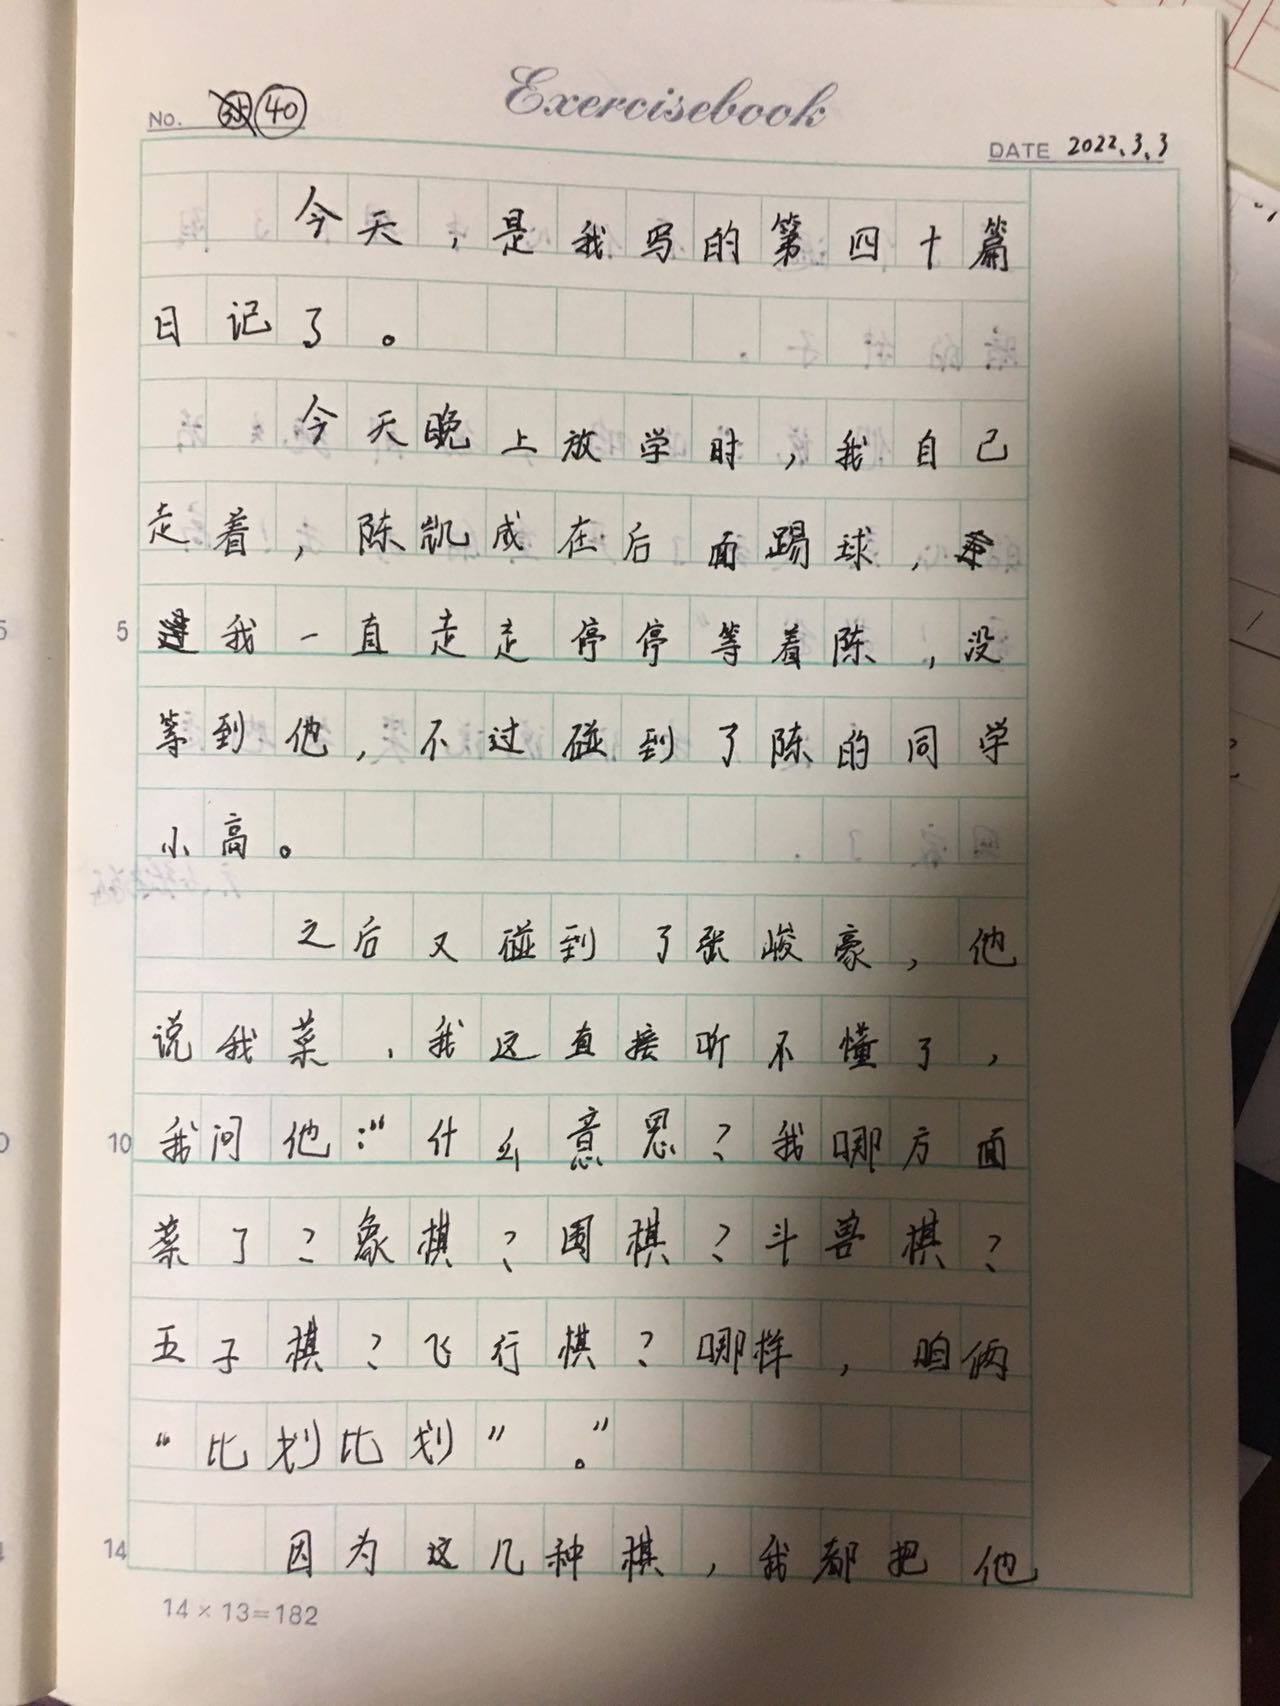 Exercisebook
No. 40
DATE 2022.3.3
今天,是我写的第四十篇
日记了。
今天晚上放学时,我自己
走着,陈凯威在后面踢球,
我一直走走停停等着陈,没
等到他,不过碰到了陈的同学
小高。
之后又碰到了张峻豪,他
说我菜,我这直接听不懂了,
我问他:“什么意思?我哪方面
菜了?象棋?围棋?斗兽棋?
五子棋?飞行棋?哪样,咱俩
“比划比划”。”
因为这几种棋,我都把他
5
10
14
14×13=182